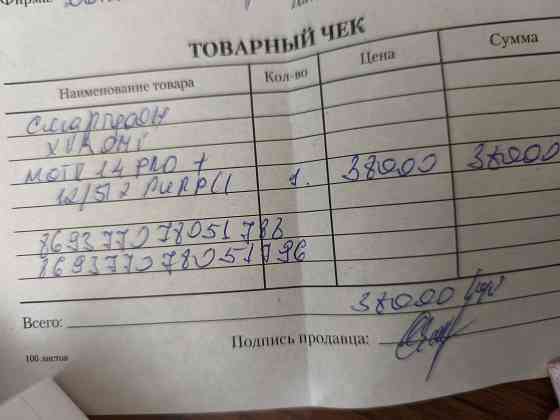 Фирма
ТОВАРНЫЙ ЧЕК
Наименование товара Кол-во Цена Сумма
Смартфон
XIAOMI
NOTE 14 PRO +
12/512 PURPLL 1. 38000 38000
869377078051786
869377078051796
38000
Всего:
Подпись продавца:
100 листов